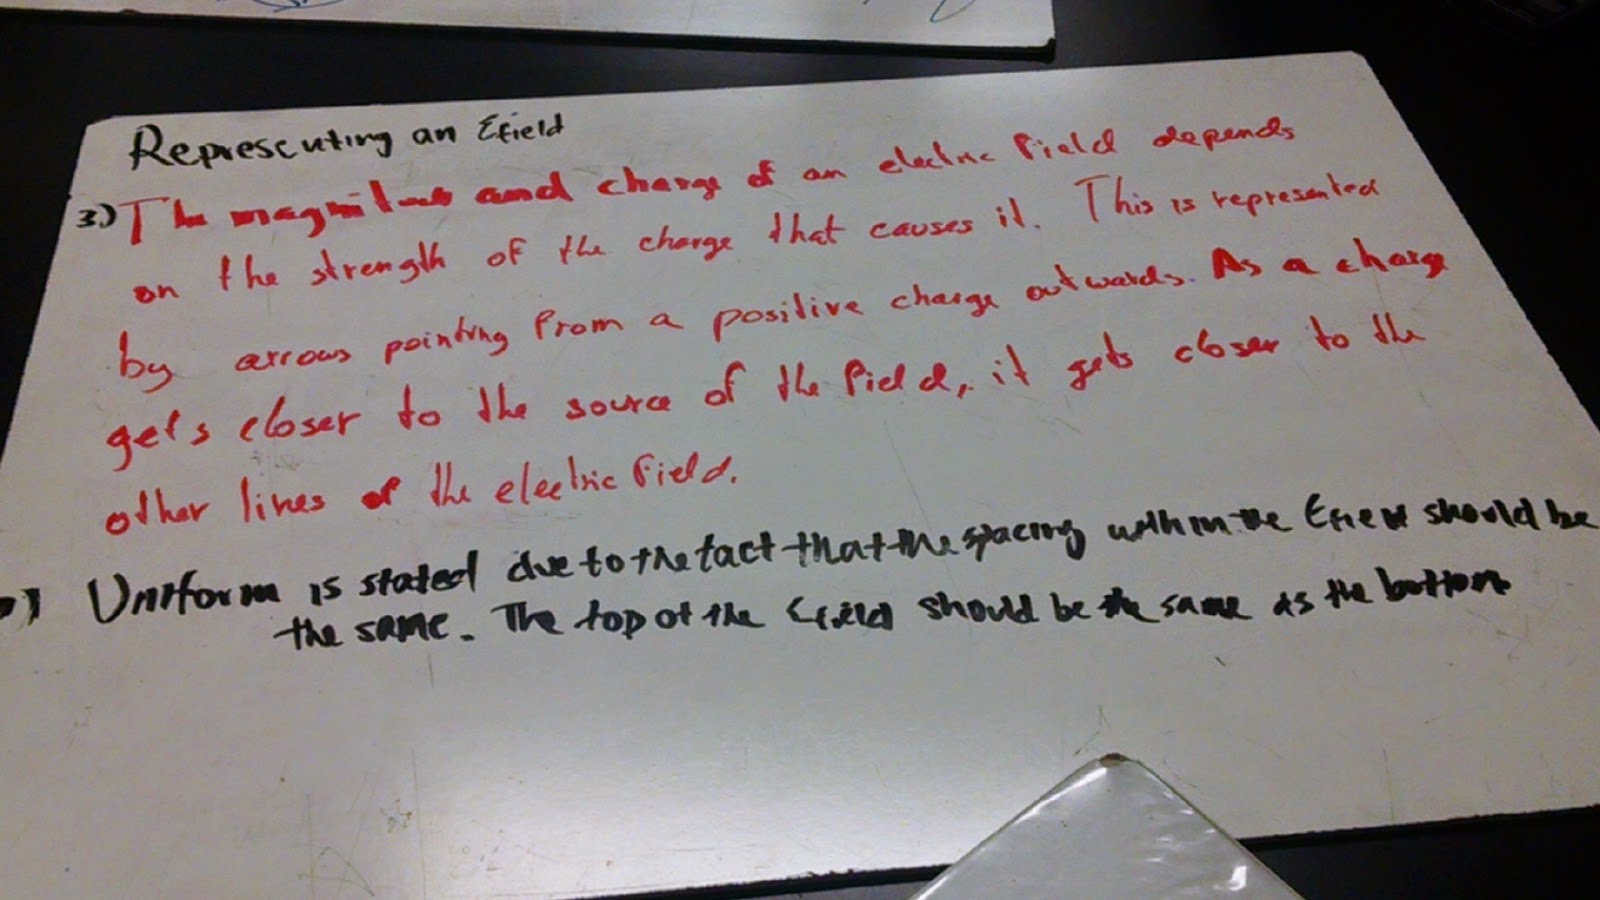 Representing an Efield
3.) The magnitude and charge of an electric field depends
on the strength of the charge that causes it. This is represented
by arrows pointing from a positive charge outwards. As a charge
gets closer to the source of the field, it gets closer to the
other lines of the electric field.
Uniform is stated due to the fact that the spacing within the Efield should be
the same. The top of the Efield should be the same as the bottom